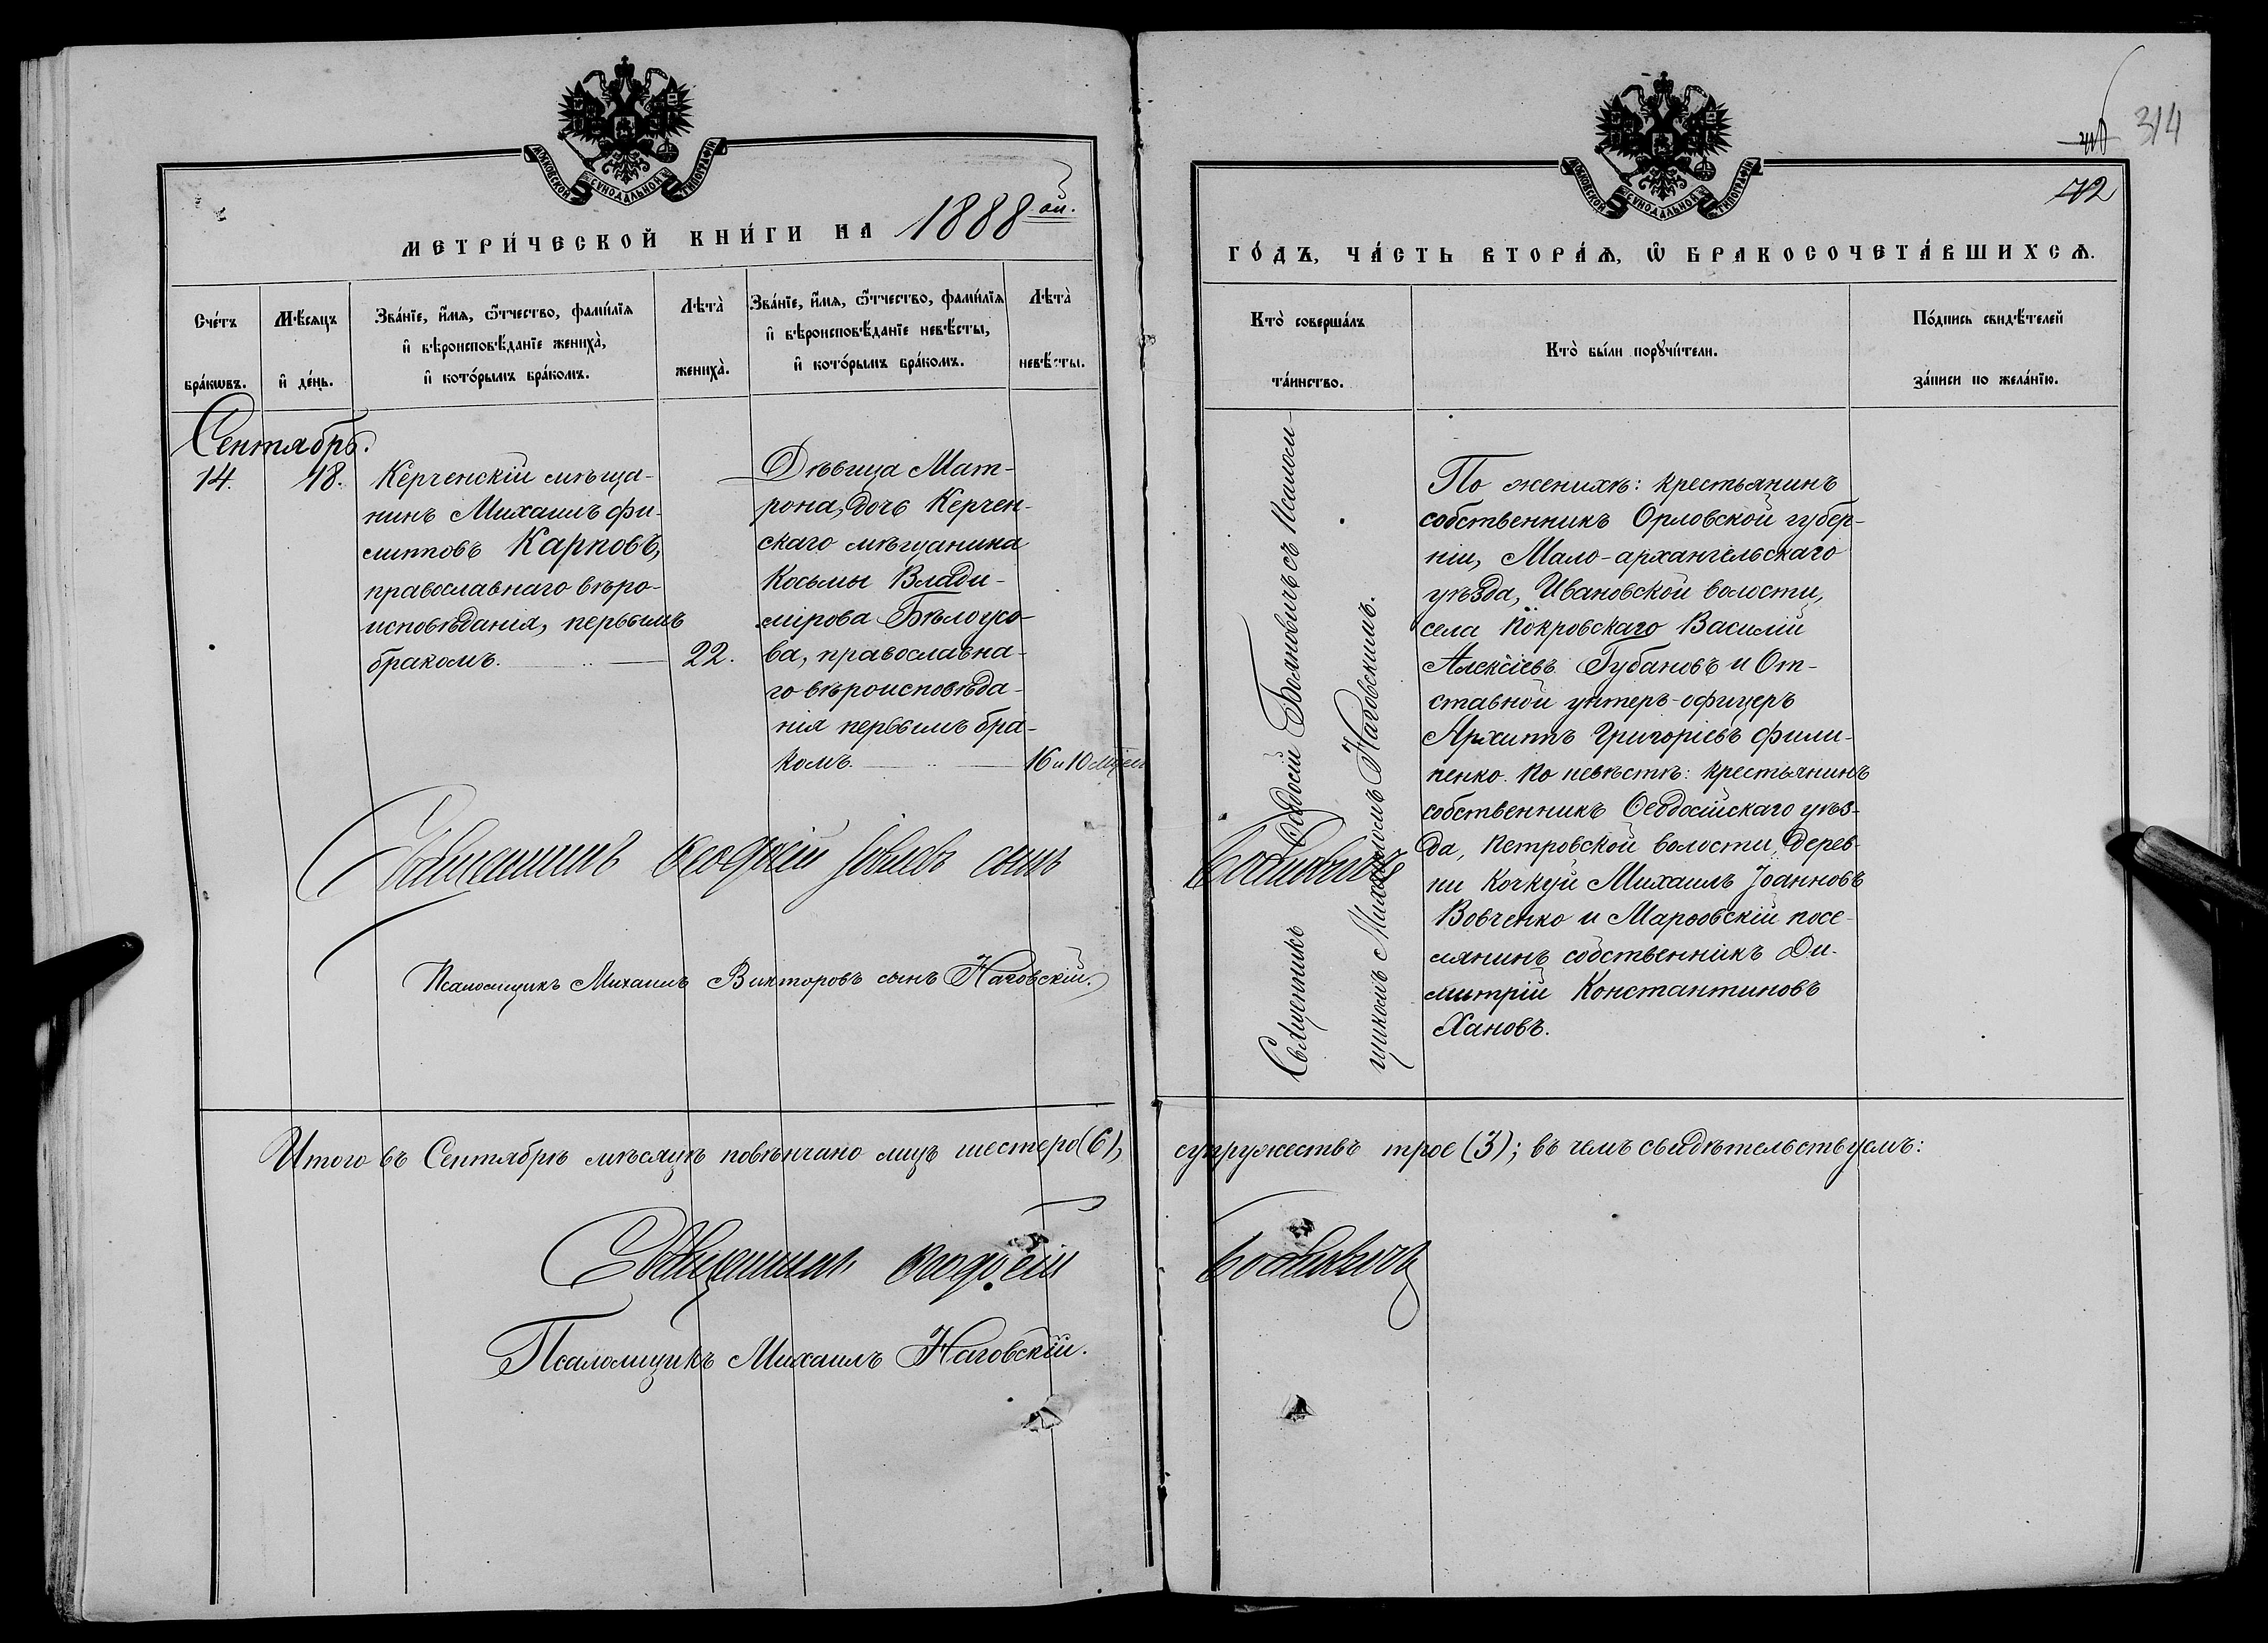 МОСКОВСКОЙ СУНОДАЛЬНОЙ ТИПОГРАФІИ
МЕТРИ́ЧЕСКОЙ КНИ́ГИ НА 1888 ой.
Сче́тъ бра́кѡвъ.
Мѣ́сяцъ и҆ де́нь.
Зва́нїе, и҆́мя, ѻ҆́тчество, фами́лїя
и҆ вѣроисповѣ́данїе женихà,
и҆ кото́рымъ бра́комъ.
Лѣтà женихà.
Зва́нїе, и҆́мя, ѻ҆́тчество, фами́лїя
и҆ вѣроисповѣ́данїе невѣ́сты,
и҆ кото́рымъ бра́комъ.
Лѣтà невѣ́сты.
Сентябрь.
14.
18.
Керченскій мѣща-
нинъ Михаилъ Фи-
липповъ Карповъ,
православнаго вѣро-
исповѣданія, первымъ
бракомъ.
22.
Дѣвица Мат-
рона, дочь Керчен-
скаго мѣщанина
Косьмы Влади-
мірова Бѣлоусо-
ва, православна-
го вѣроисповѣда-
нія первымъ бра-
комъ.
16 и 10 мѣсяц
Священникъ Ѳеодосій Іовлевъ сынъ
Псаломщикъ Михаилъ Викторовъ сынъ Наговскій.
Итого въ Сентябрѣ мѣсяцѣ повѣнчано лицъ шестеро (6),
Священникъ Ѳеодосій
Псаломщикъ Михаилъ Наговскій.
314
72
МОСКОВСКОЙ СУНОДАЛЬНОЙ ТИПОГРАФІИ
ГО́ДЪ, ЧА́СТЬ ВТОРА́Ѧ, Ѡ҆ БРАКОСОЧЕТА́ВШИХСѦ.
Кто̀ соверша́лъ
та́инство.
Кто̀ бы́ли порꙋчи́тели.
По́дпись свидѣ́телей
за́писи по жела́нїю.
Священникъ Ѳеодосій Бояновичъ съ Псалом-
щикомъ Михаиломъ Наговскимъ.
По женихѣ: крестьянинъ
собственникъ Орловской губер-
ніи, Мало-архангельскаго
уѣзда, Ивановской волости,
села Покровскаго Василій
Алексіевъ Губановъ и От-
ставной унтеръ-офицеръ
Архиппъ Григоріевъ Фили-
пенко. По невѣстѣ: крестьянинъ
собственникъ Ѳеодосійскаго уѣз-
да, Петровской волости, дерев-
ни Кочкуй Михаилъ Іоанновъ
Вовченко и Марѳовскій посе-
лянинъ собственникъ Ди-
митрій Константиновъ
Хановъ.
Бояновичъ
супружествъ трое (3); въ чемъ свидѣтельствуемъ:
Бояновичъ